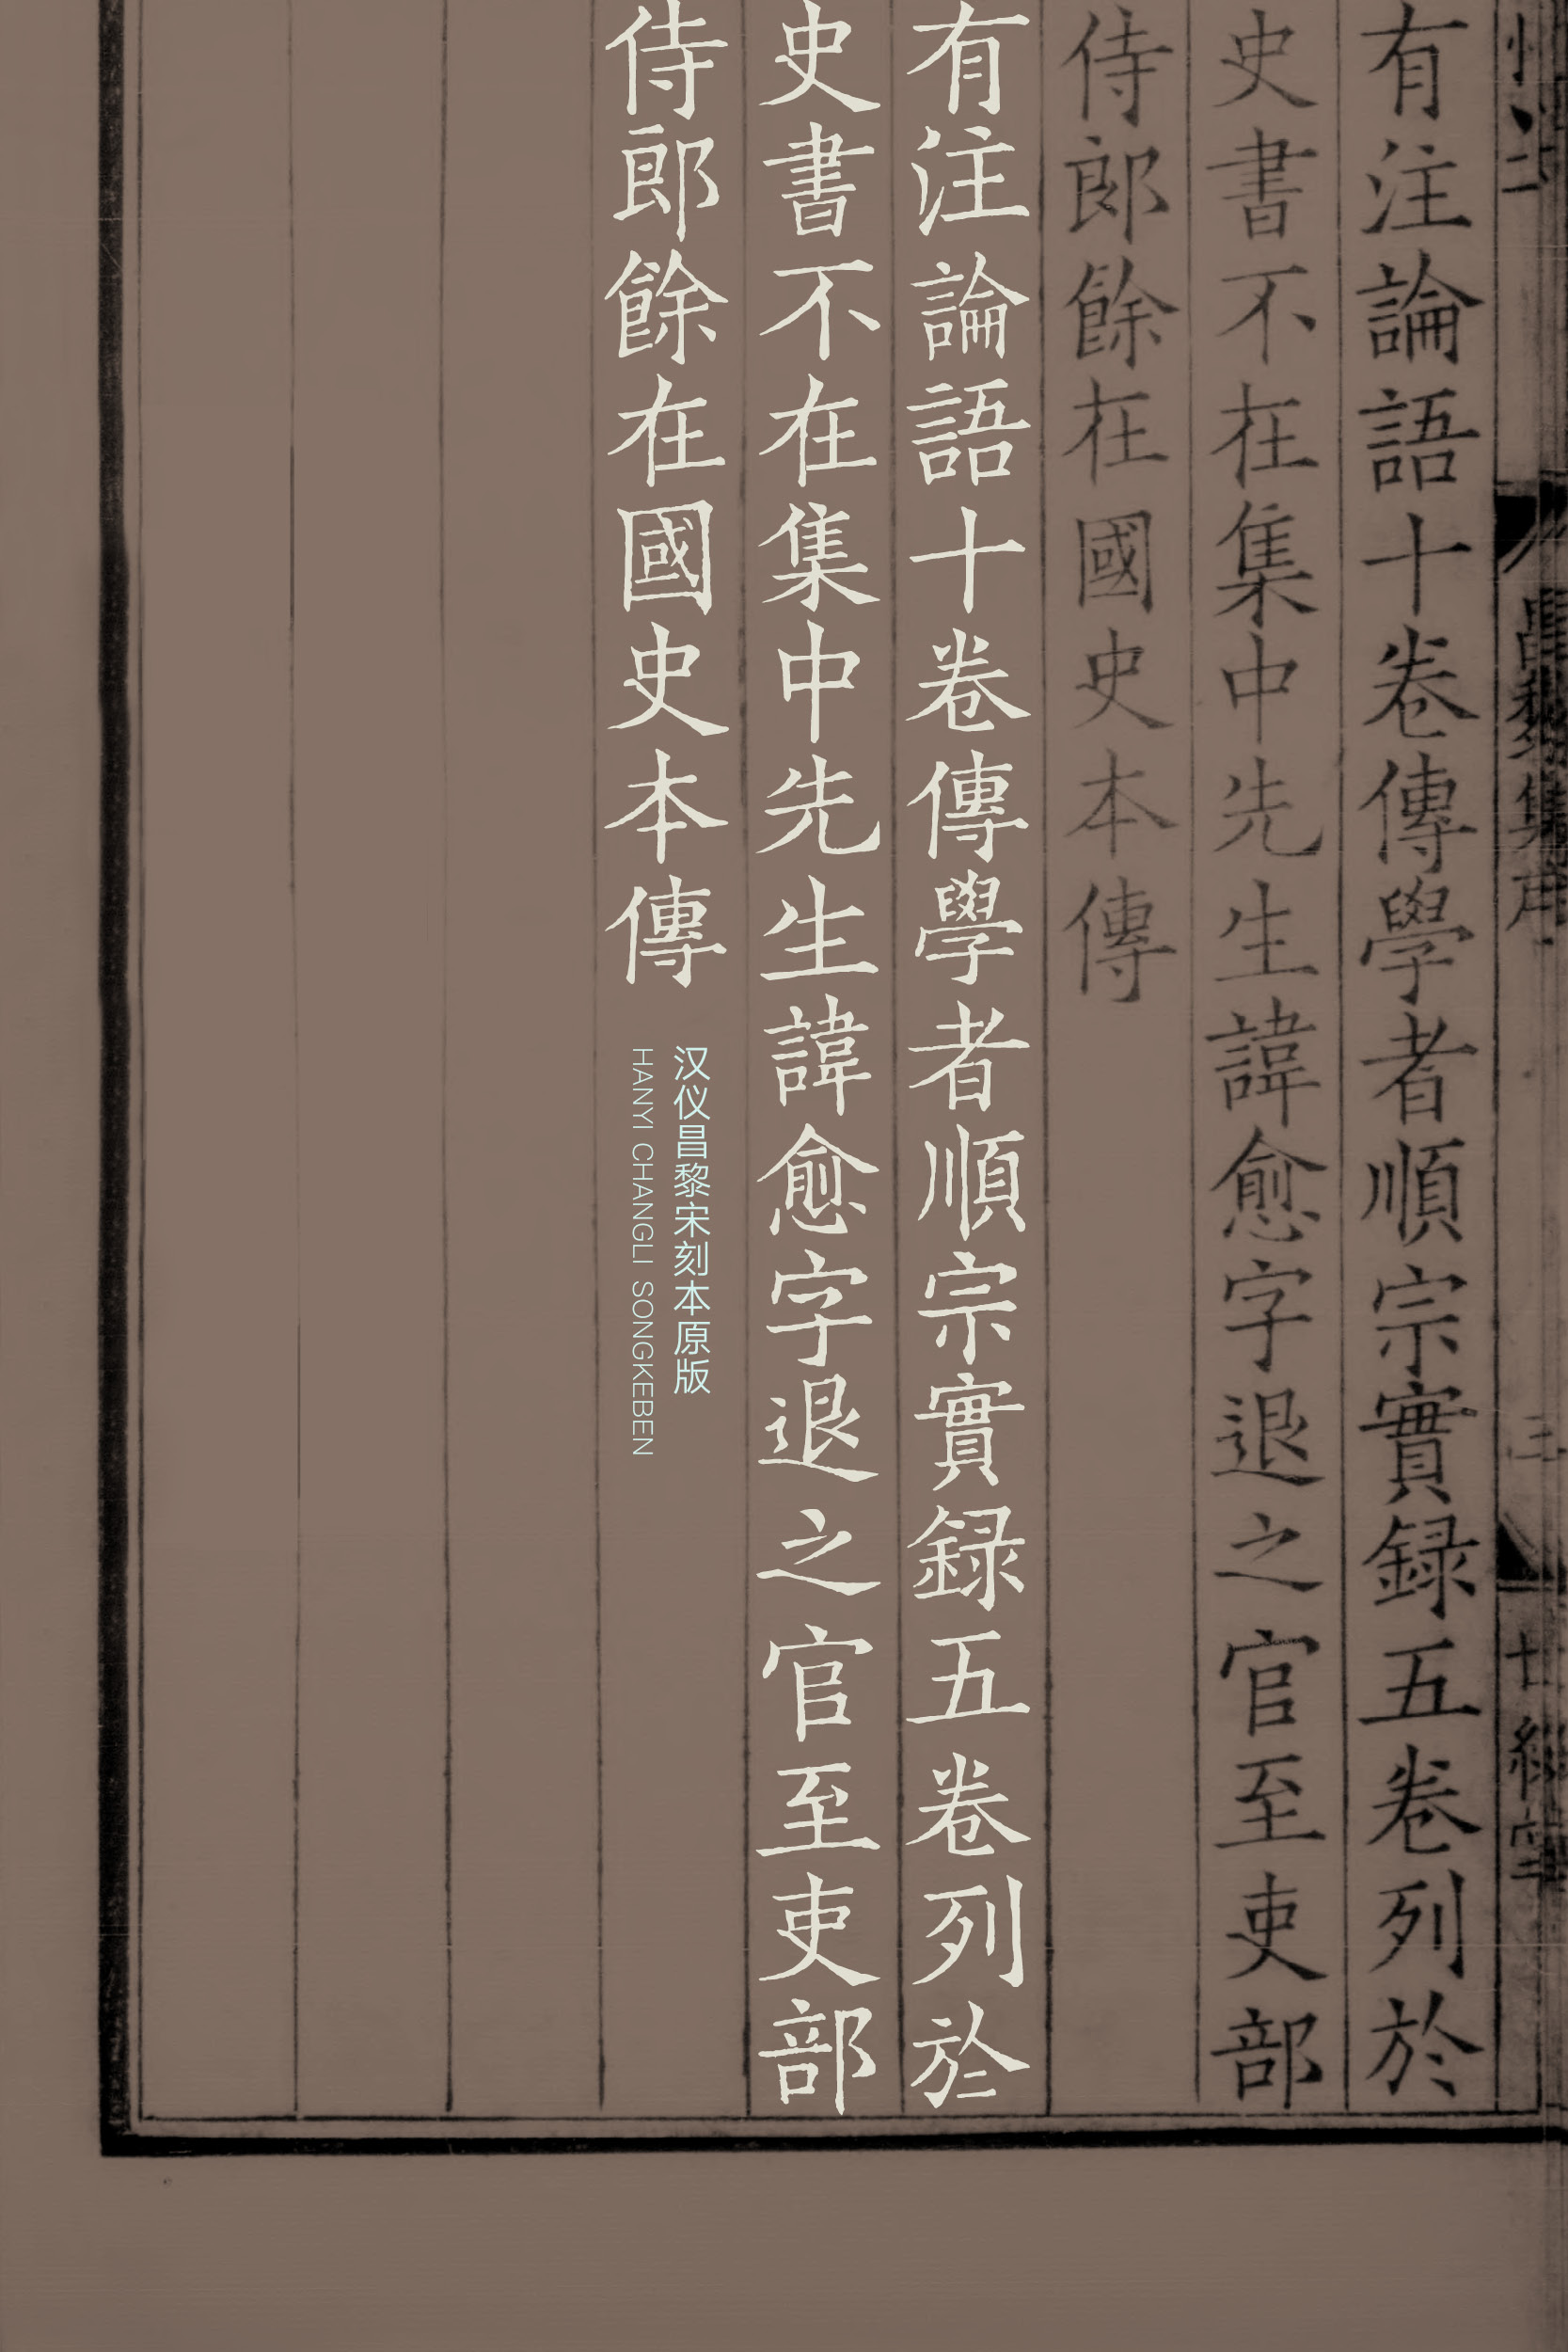 昌黎集序
三
有注論語十卷傳學者順宗實録五卷列於
史書不在集中先生諱愈字退之官至吏部
侍郎餘在國史本傳
有注論語十卷傳學者順宗實録五卷列於
史書不在集中先生諱愈字退之官至吏部
侍郎餘在國史本傳
汉仪昌黎宋刻本原版
HANYI CHANGLI SONGKEBEN